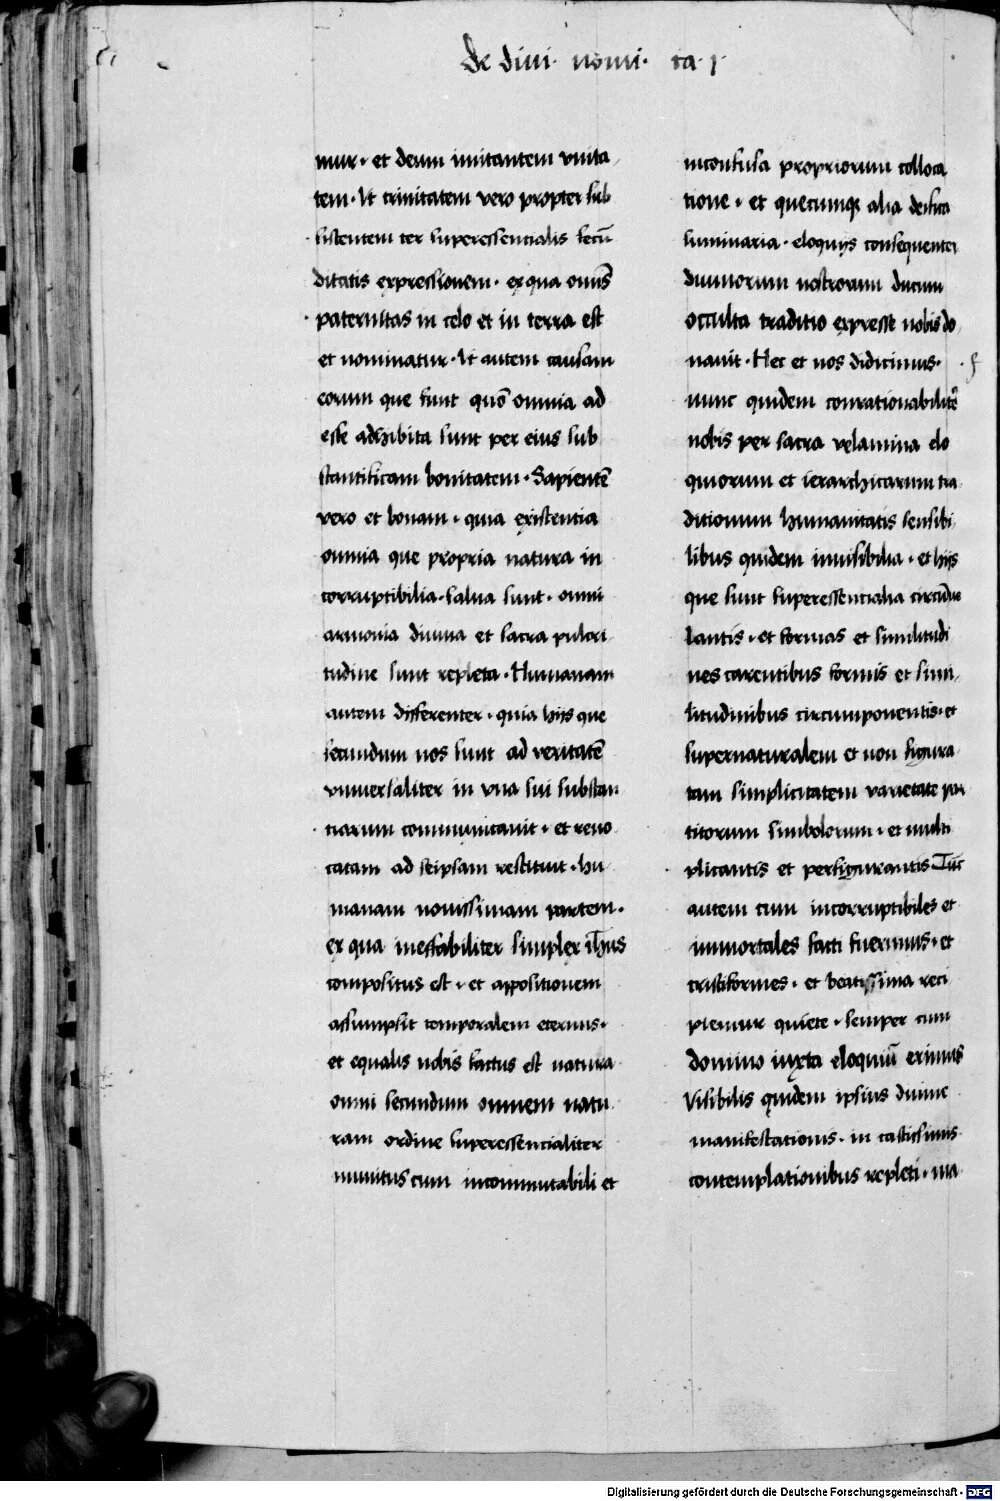 De divi· nomi· ca· 1·
mur· et deum imitantem vnita
tem· Ut trinitatem vero propter sub
sistentem ter superessentialis fecū
ditatis expressionem· ex qua omīs
paternitas in celo et in terra est
et nominatur· Ut autem causam
eorum que sunt quō omnia ad
esse adhibita sunt per eius sub
stantificam bonitatem· Sapientē
vero et bonam· quia existentia
omnia que propria natura in
corruptibilia· salua sunt· omni
armonia diuina et sacra pulcri
tudine sunt repleta· Humanam
autem differenter· quia hijs que
secundum nos sunt ad veritatē
vniuersaliter in vna sui substan
tiarum communicauit· et reuo
catam ad seipsam restituit· hu
manam nouissimam partem·
ex qua ineffabiliter simplex ih̄us
compositus est· et appositionem
assumpsit temporalem eternus·
et equalis nobis factus est natura
omni secundum omnem natu
ram ordine superessencialiter
munitus cum incommutabili et
inconfusa propriorum colloca
tione· et quecumqꝫ alia deifica
luminaria· eloquijs consequenter
diuinorum nostrorum ducum
occulta traditio expresse nobis do
nauit· Hec et nos didicimus·
nunc quidem conrationabilitē
nobis per sacra velamina elo
quiorum et ierarchicarum tra
ditionum humanitatis sensibi
libus quidem inuisibilia· et hijs
que sunt superessentialia circūue
lantis· et formas et similitudi
nes carentibus formis et simi
litudinibus circumponentis· et
supernaturalem et non figura
tam simplicitatem varietate par
titorum simbolorum· et multi
plicantis et perfigurantis Tūc
autem cum incorruptibiles et
immortales facti fuerimus· et
cristiformes· et beatissima reci
piemur quiete· semper cum
domino iuxta eloquiū erimus
Visibilis quidem ipsius diuine
manifestationis· in castissimis
contemplationibus repleti· ma
Digitalisierung gefördert durch die Deutsche Forschungsgemeinschaft - DFG